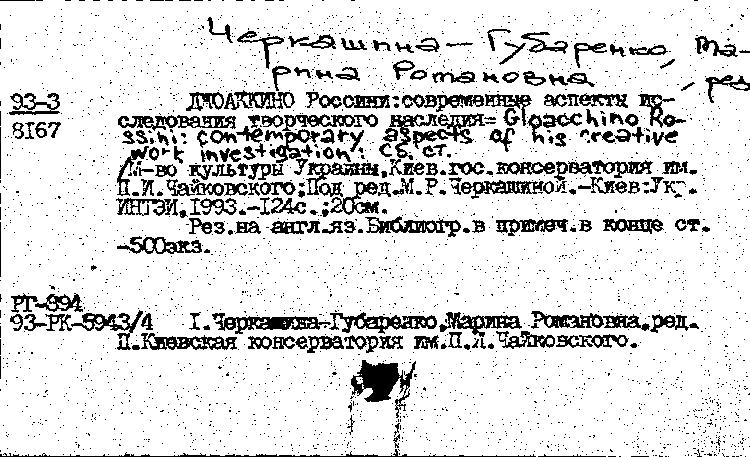 Черкашина-Губаренко, Ма-
рина Романовна, ред
93-3
8I67
ДЖОАККИНО Россини:современные аспекты ис-
следования творческого наследия=Gloacchino Ro-
ssini: contemporary aspects of his creative
work investigation: Сб.ст.
/М-во культуры Украины,Киев.гос.консерватория им.
П.И.Чайковского;Под ред.М.Р.Черкашиной.-Киев:Укр.
ИНТЭИ,I993.-I24с.;20см.
Рез.на англ.яз.Библиогр.в примеч.в конце ст.
-500экз.
РГ-894
93-РК-5943/4 I.Черкашина-Губаренко,Марина Романовна,ред.
П.Киевская консерватория им.П.И.Чайковского.